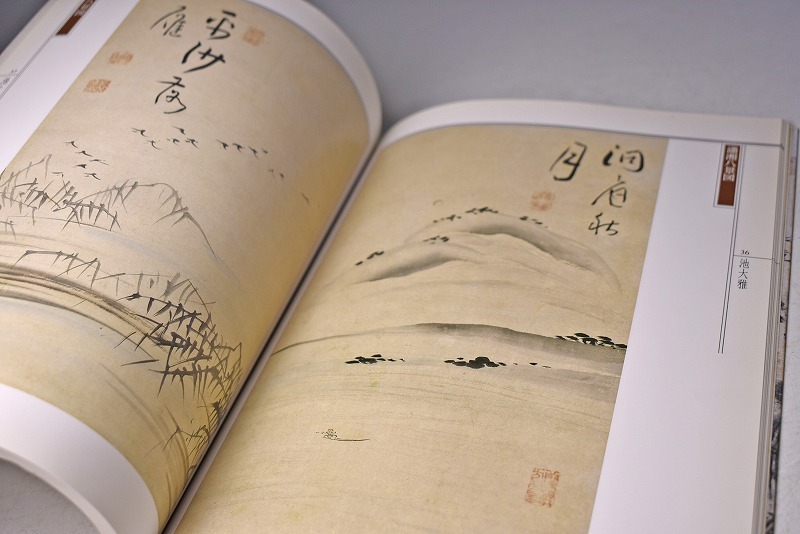 瀟湘八景図
36
池大雅
洞庭秋
月
平沙落
雁